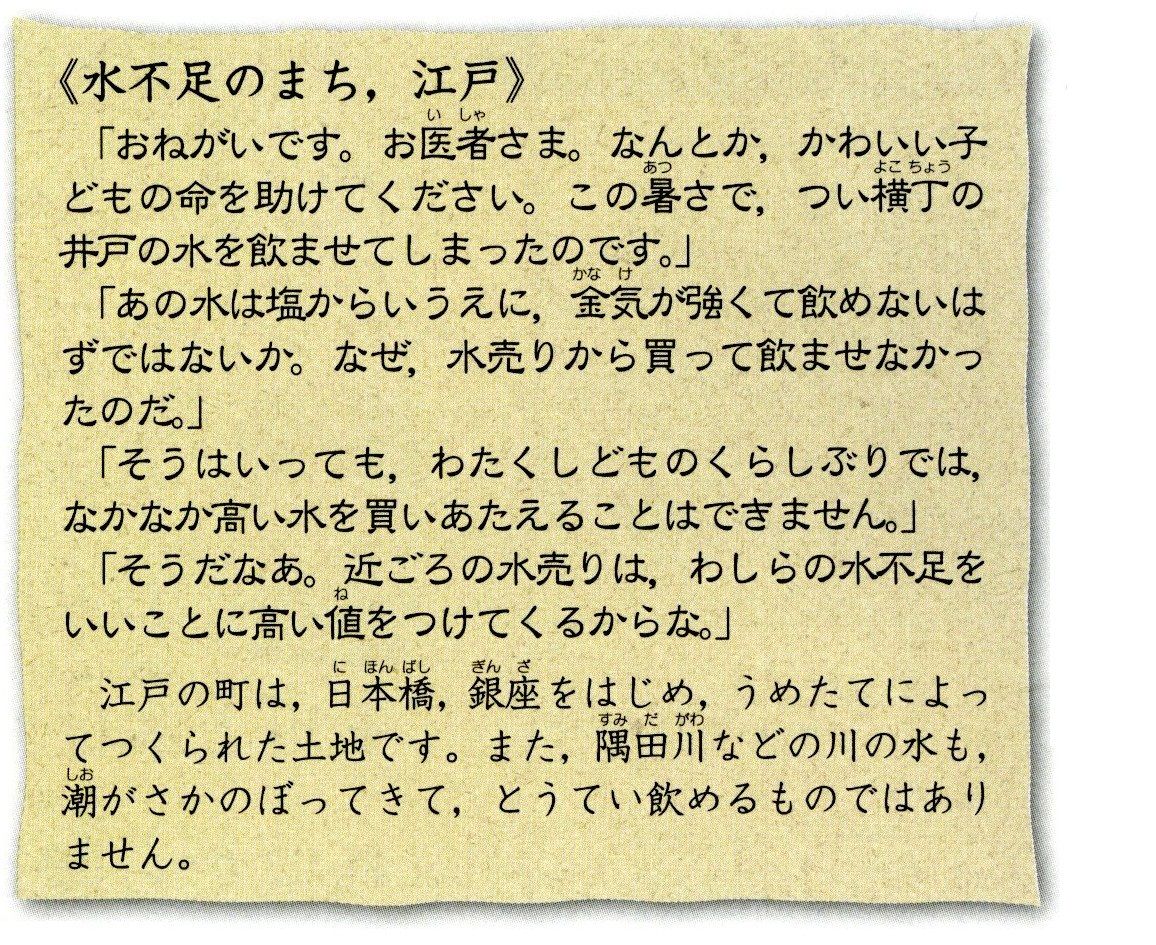 《水不足のまち，江戸》
「おねがいです。お医者さま。なんとか，かわいい子
どもの命を助けてください。この暑さで，つい横丁の
井戸の水を飲ませてしまったのです。」
「あの水は塩からいうえに，金気が強くて飲めないは
ずではないか。なぜ，水売りから買って飲ませなかっ
たのだ。」
「そうはいっても，わたくしどものくらしぶりでは，
なかなか高い水を買いあたえることはできません。」
「そうだなあ。近ごろの水売りは，わしらの水不足を
いいことに高い値をつけてくるからな。」
江戸の町は，日本橋，銀座をはじめ，うめたてによっ
てつくられた土地です。また，隅田川などの川の水も，
潮がさかのぼってきて，とうてい飲めるものではあり
ません。